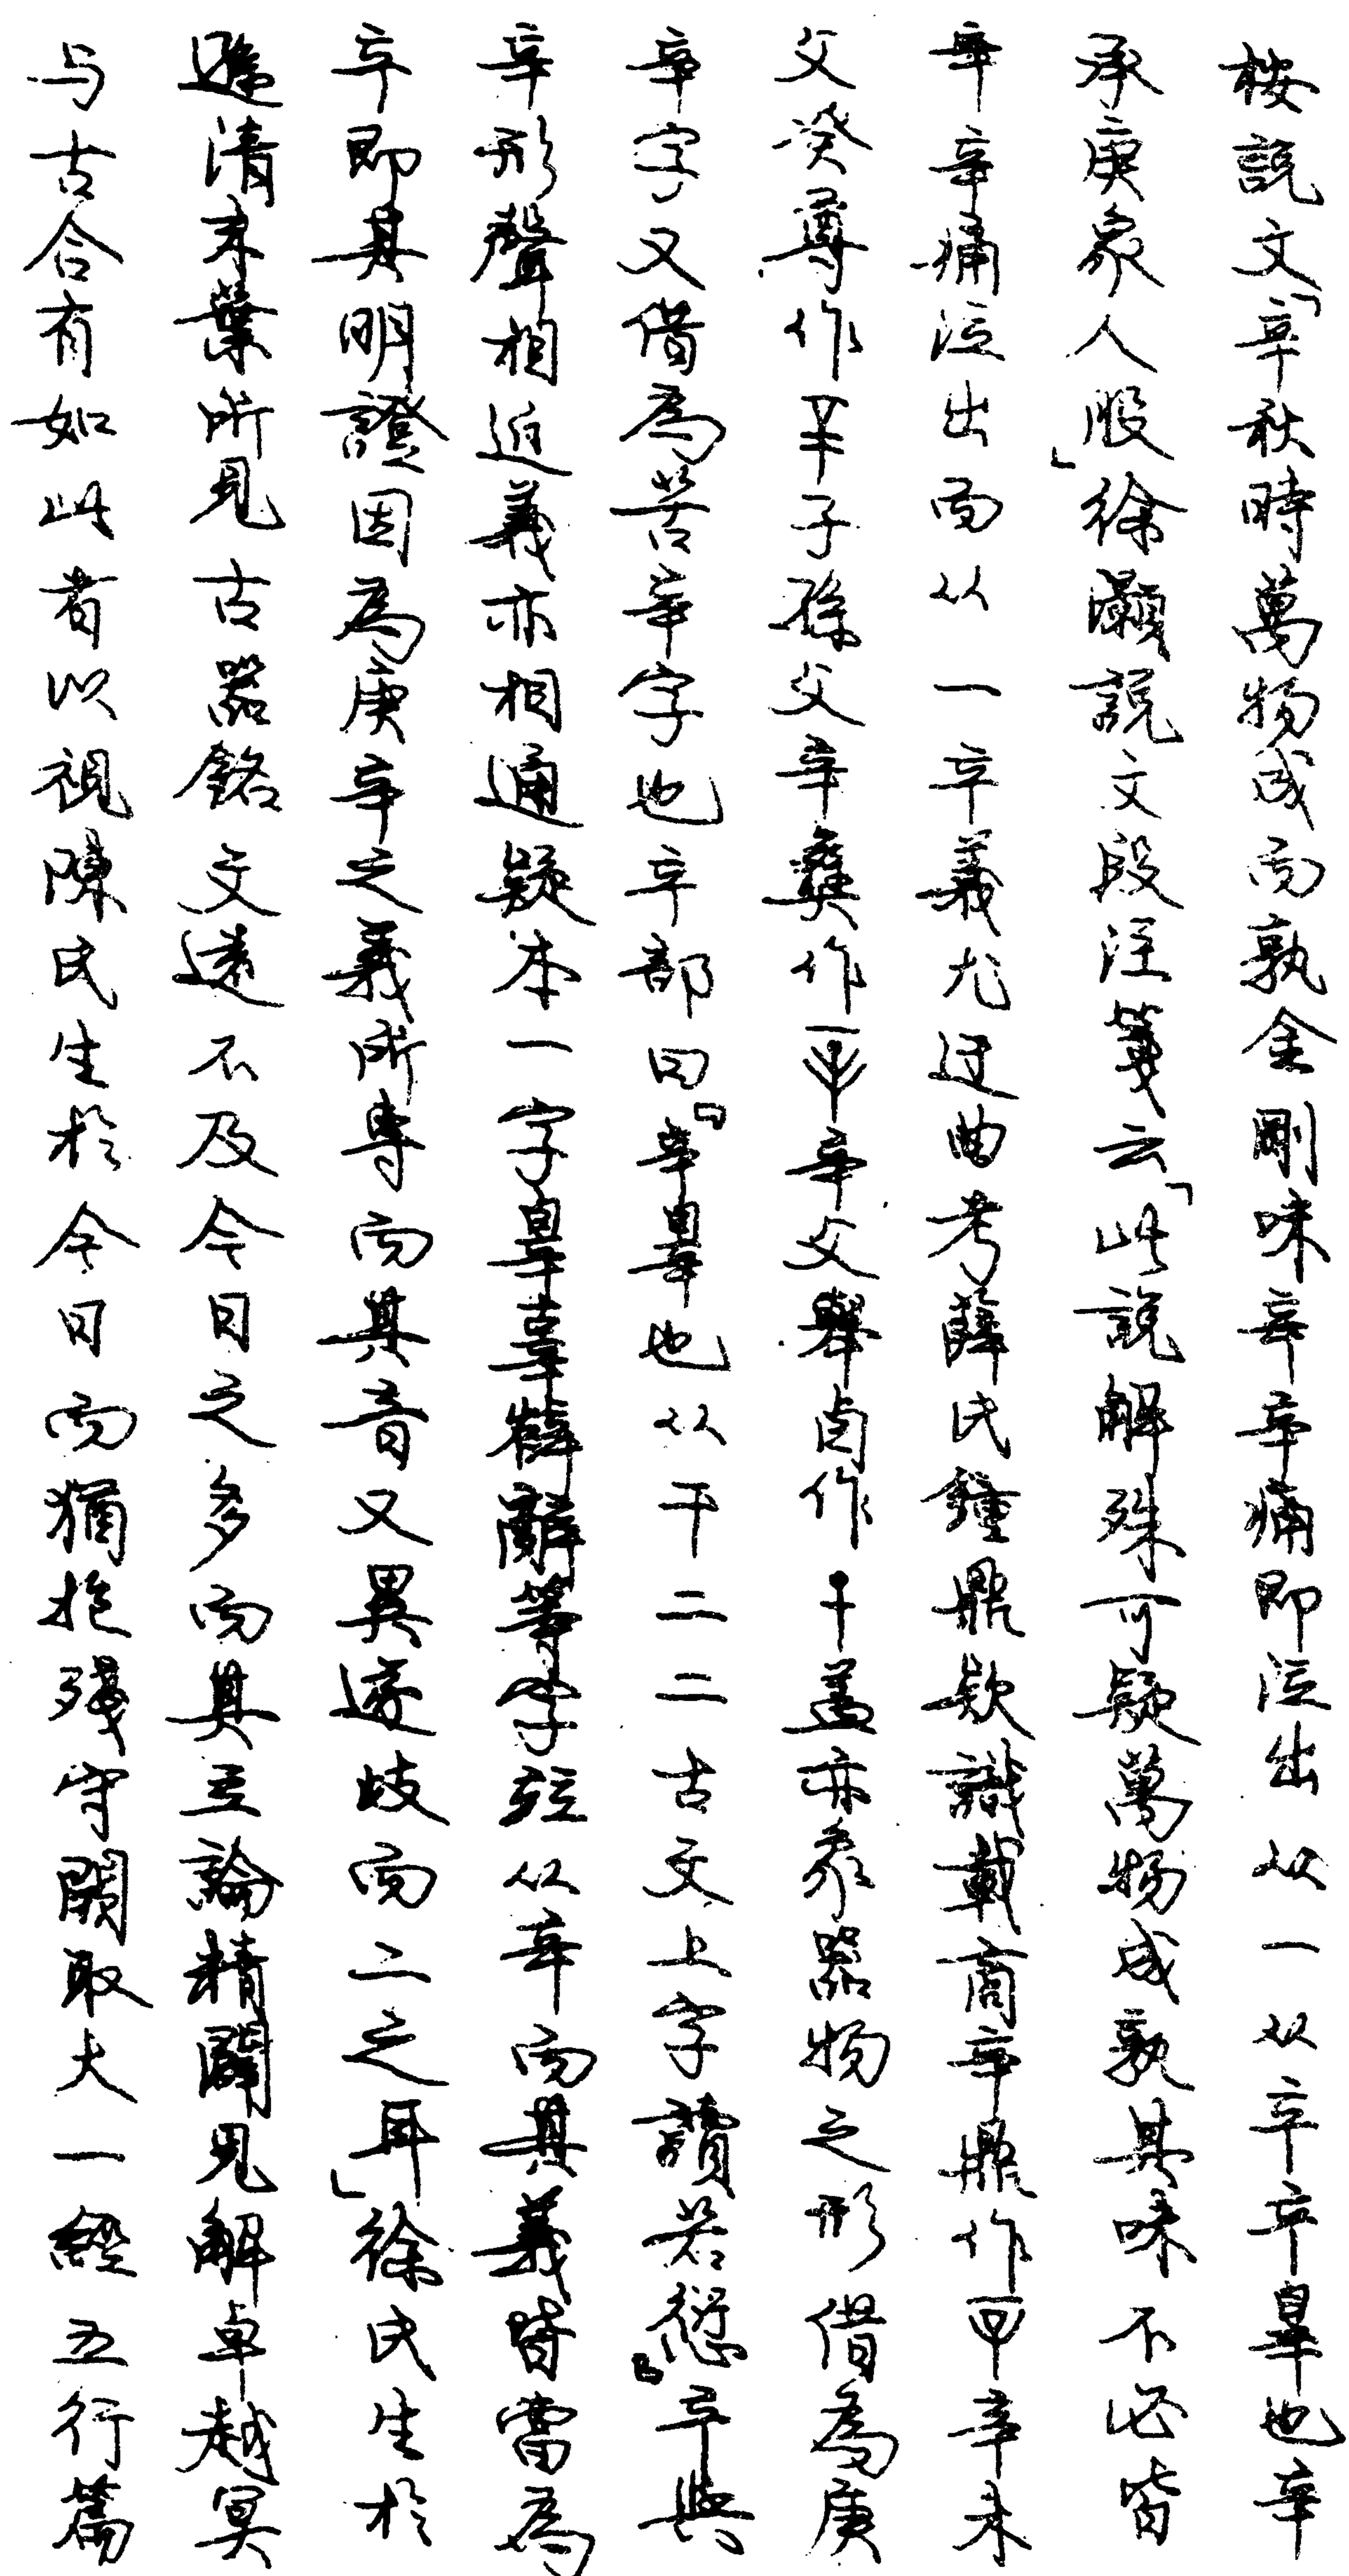 桉說文「辛秋時萬物成而孰金剛味辛辛痛即泣出从一从䇂䇂辠也辛
承庚象人股」徐灝說文段注箋云「此說解殊可疑萬物成孰其味不必皆
辛辛痛泣出而从一䇂義尤迂曲考薛氏鐘鼎款識載商辛鼎作辛未
父癸尊作子孫父辛彝作辛父舉卣作蓋亦象器物之形借為庚
辛字又借為苦辛字也䇂部曰『䇂辠也从干二二古文上字讀若愆』䇂與
辛形聲相近義亦相通疑本一字辠辜辥辭等字竝从辛而其義皆當為
䇂即其明證因為庚辛之義所專而其音又異遂歧而二之耳」徐氏生於
遜清末葉所見古器銘文遠不及今日之多而其立論精闢見解卓越冥
与古合有如此者以視陳氏生於今日而猶抱殘守闕取大一經五行篇